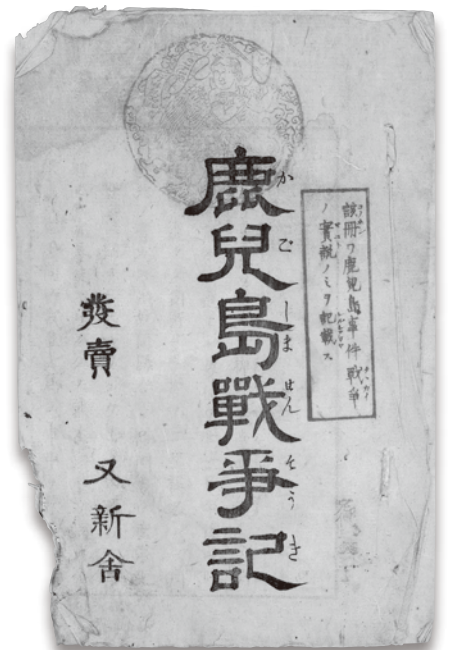 該冊ワ鹿児島事件戦争
ノ實説ノミヲ記載ス
鹿兒島戰爭記
かごしませんそうき
發賣 又新舍